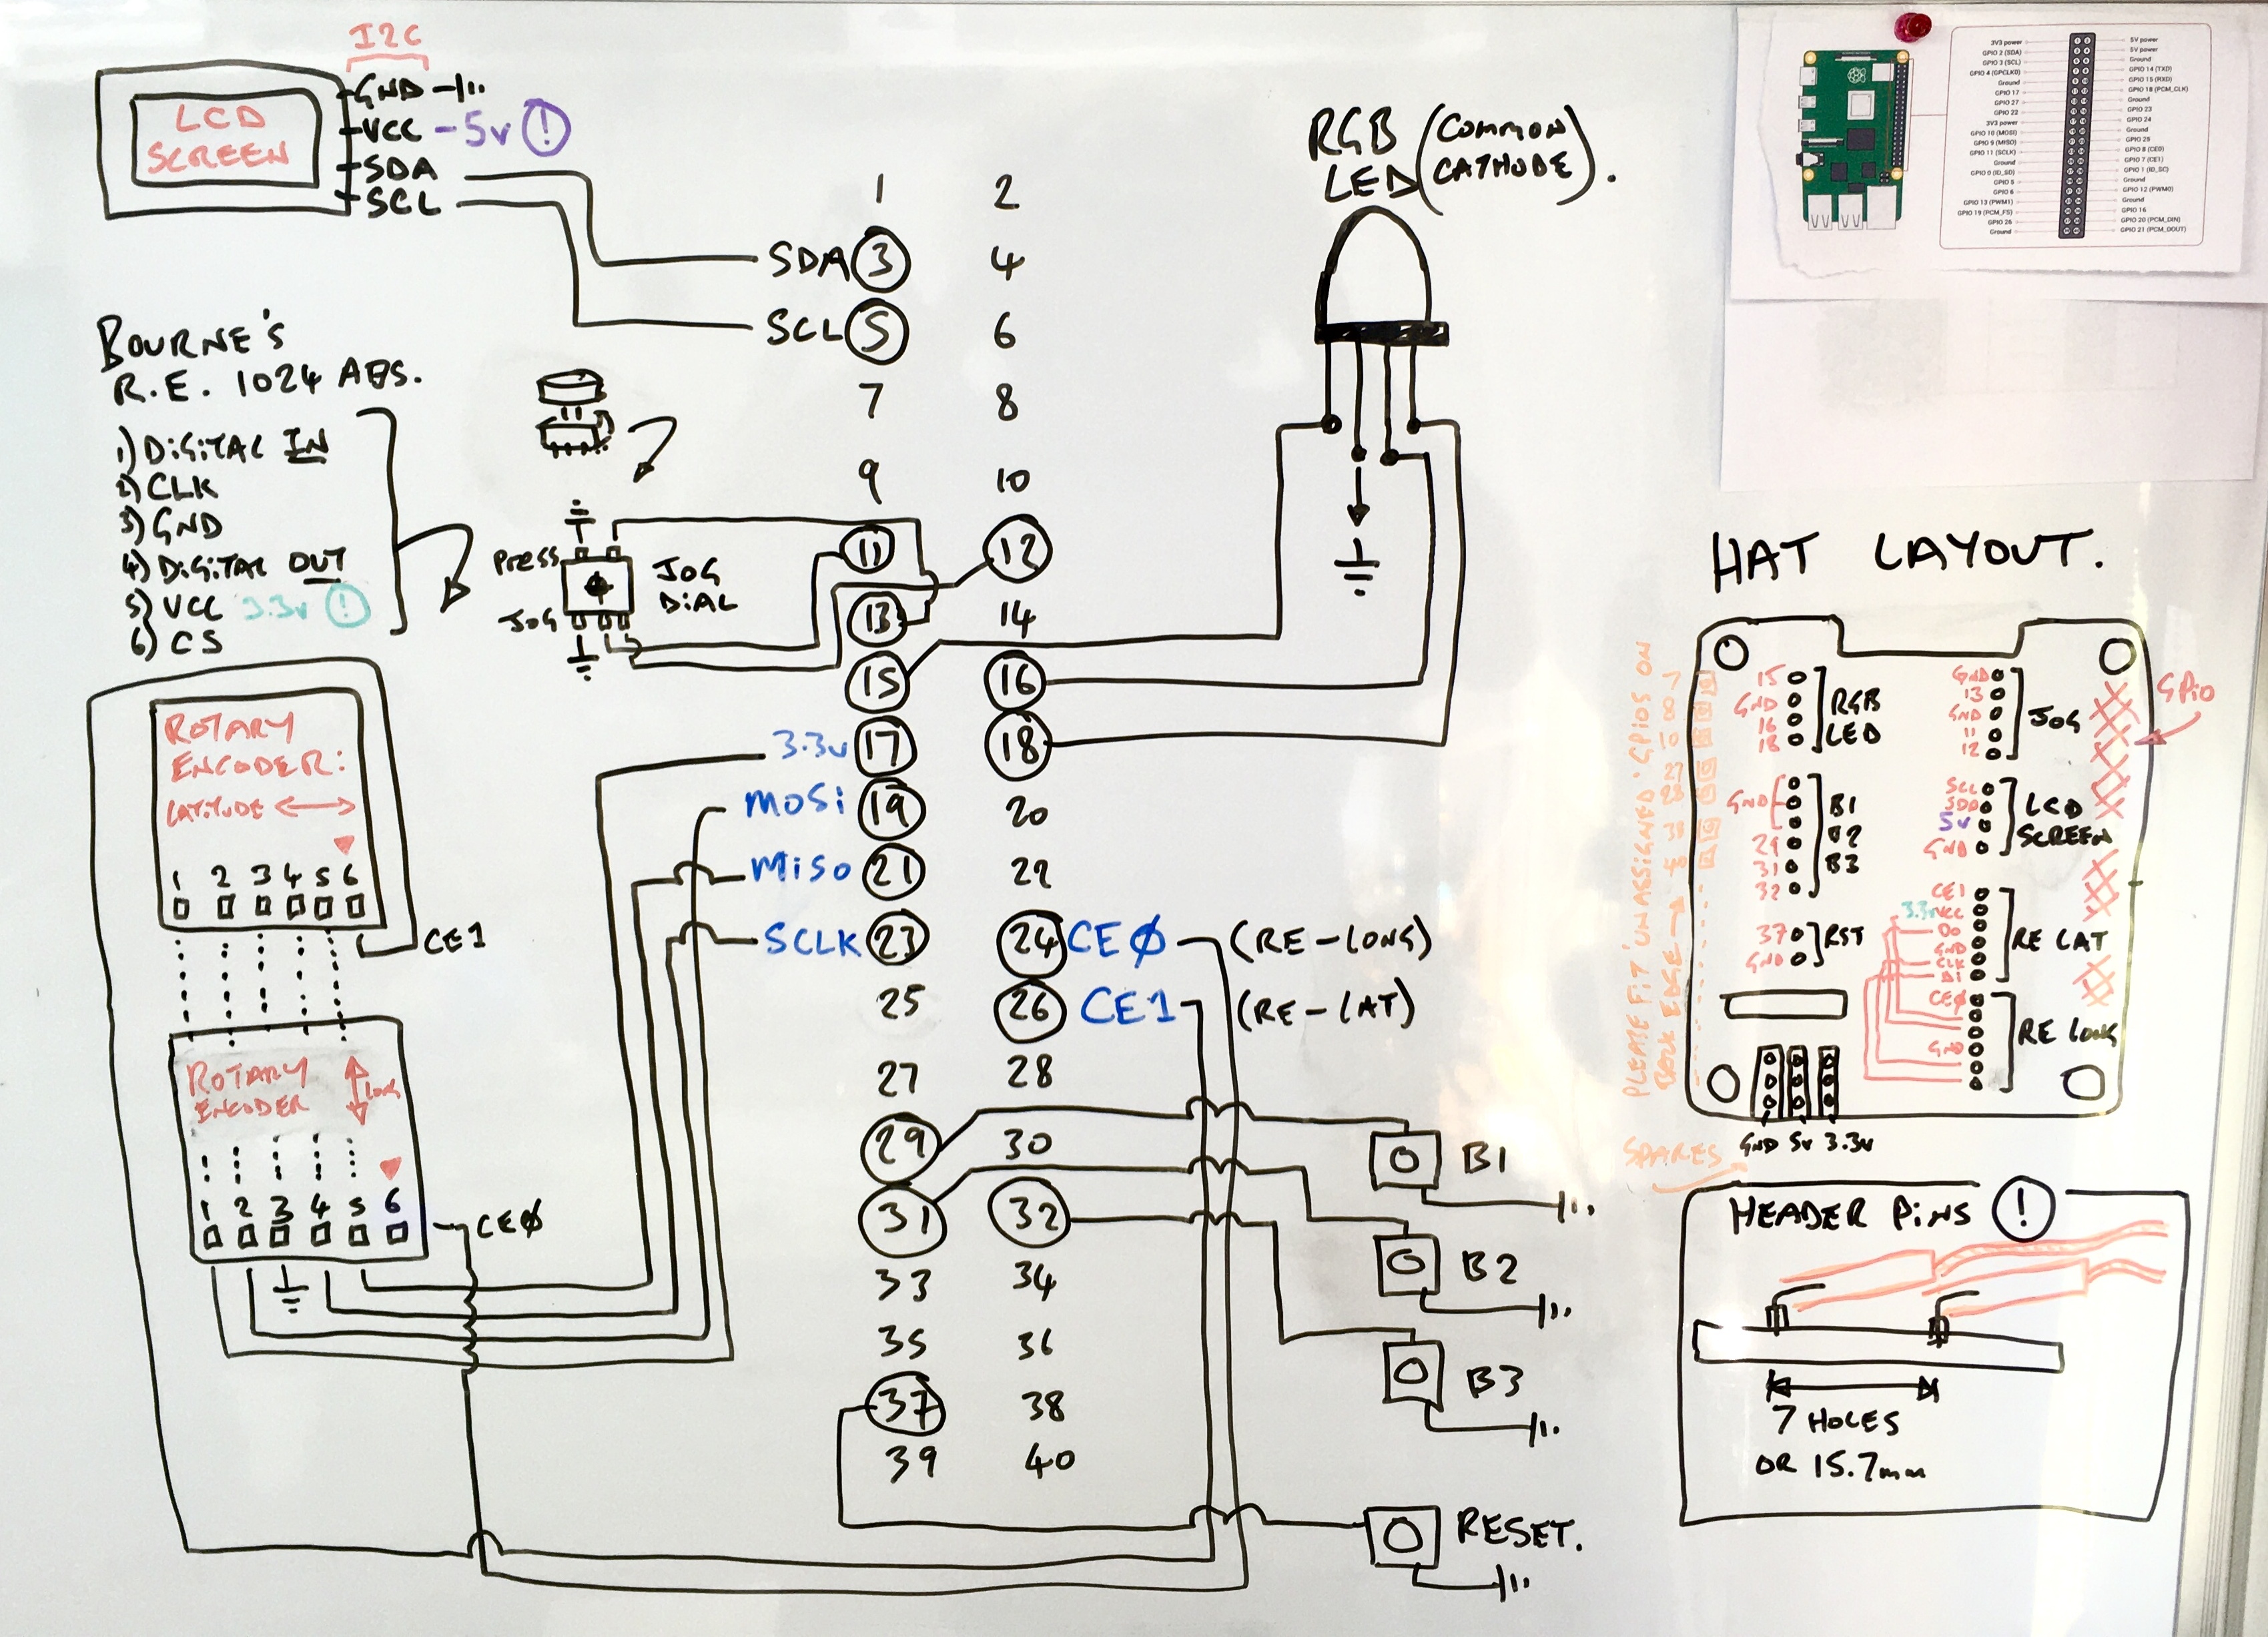 I2C
GND
VCC - 5V !
SDA
SCL
LCD
SCREEN
BOURNE'S
R.E. 1024 ABS.
1) DiGiTAL IN
2) CLK
3) GND
4) DiGiTAL OUT
5) VCC 3.3v !
6) CS
PRESS
JOG
JOG
DiAL
ROTARY
ENCODER:
LATITUDE
1 2 3 4 5 6
CE1
ROTARY
ENCODER
LONG
1 2 3 4 5 6
CEØ
1 2
SDA 3 4
SCL 5 6
7 8
9 10
11 12
13 14
15 16
3.3v 17 18
MOSi 19 20
MiSO 21 22
SCLK 23 24 CEØ (RE-LONG)
25 26 CE1 (RE-LAT)
27 28
29 30
31 32
33 34
35 36
37 38
39 40
RGB
LED (COMMON
CATHODE).
B1
B2
B3
RESET.
3V3 power
GPIO 2 (SDA)
GPIO 3 (SCL)
GPIO 4 (GPCLK0)
Ground
GPIO 17
GPIO 27
GPIO 22
3V3 power
GPIO 10 (MOSI)
GPIO 9 (MISO)
GPIO 11 (SCLK)
Ground
GPIO 0 (ID_SD)
GPIO 5
GPIO 6
GPIO 13 (PWM1)
GPIO 19 (PCM_FS)
GPIO 26
Ground
5V power
5V power
Ground
GPIO 14 (TXD)
GPIO 15 (RXD)
GPIO 18 (PCM_CLK)
Ground
GPIO 23
GPIO 24
Ground
GPIO 25
GPIO 8 (CE0)
GPIO 7 (CE1)
GPIO 1 (ID_SC)
Ground
GPIO 12 (PWM0)
Ground
GPIO 16
GPIO 20 (PCM_DIN)
GPIO 21 (PCM_DOUT)
HAT LAYOUT.
GPiO
15
GND
16
18
RGB
LED
GND
13
GND
11
12
JOG
GND
29
31
32
B1
B2
B3
SCL
SDA
5v
GND
LCD
SCREEN
37
GND
RST
CE1
3.3v VCC
DO
GND
CLK
DI
RE LAT
CEØ
GND
RE LONG
PLEASE FiT 'UNASSIGNED' GPiOS ON
BACK EDGE
GND 5v 3.3v
SPARES
HEADER PiNS !
7 HOLES
OR 15.7mm